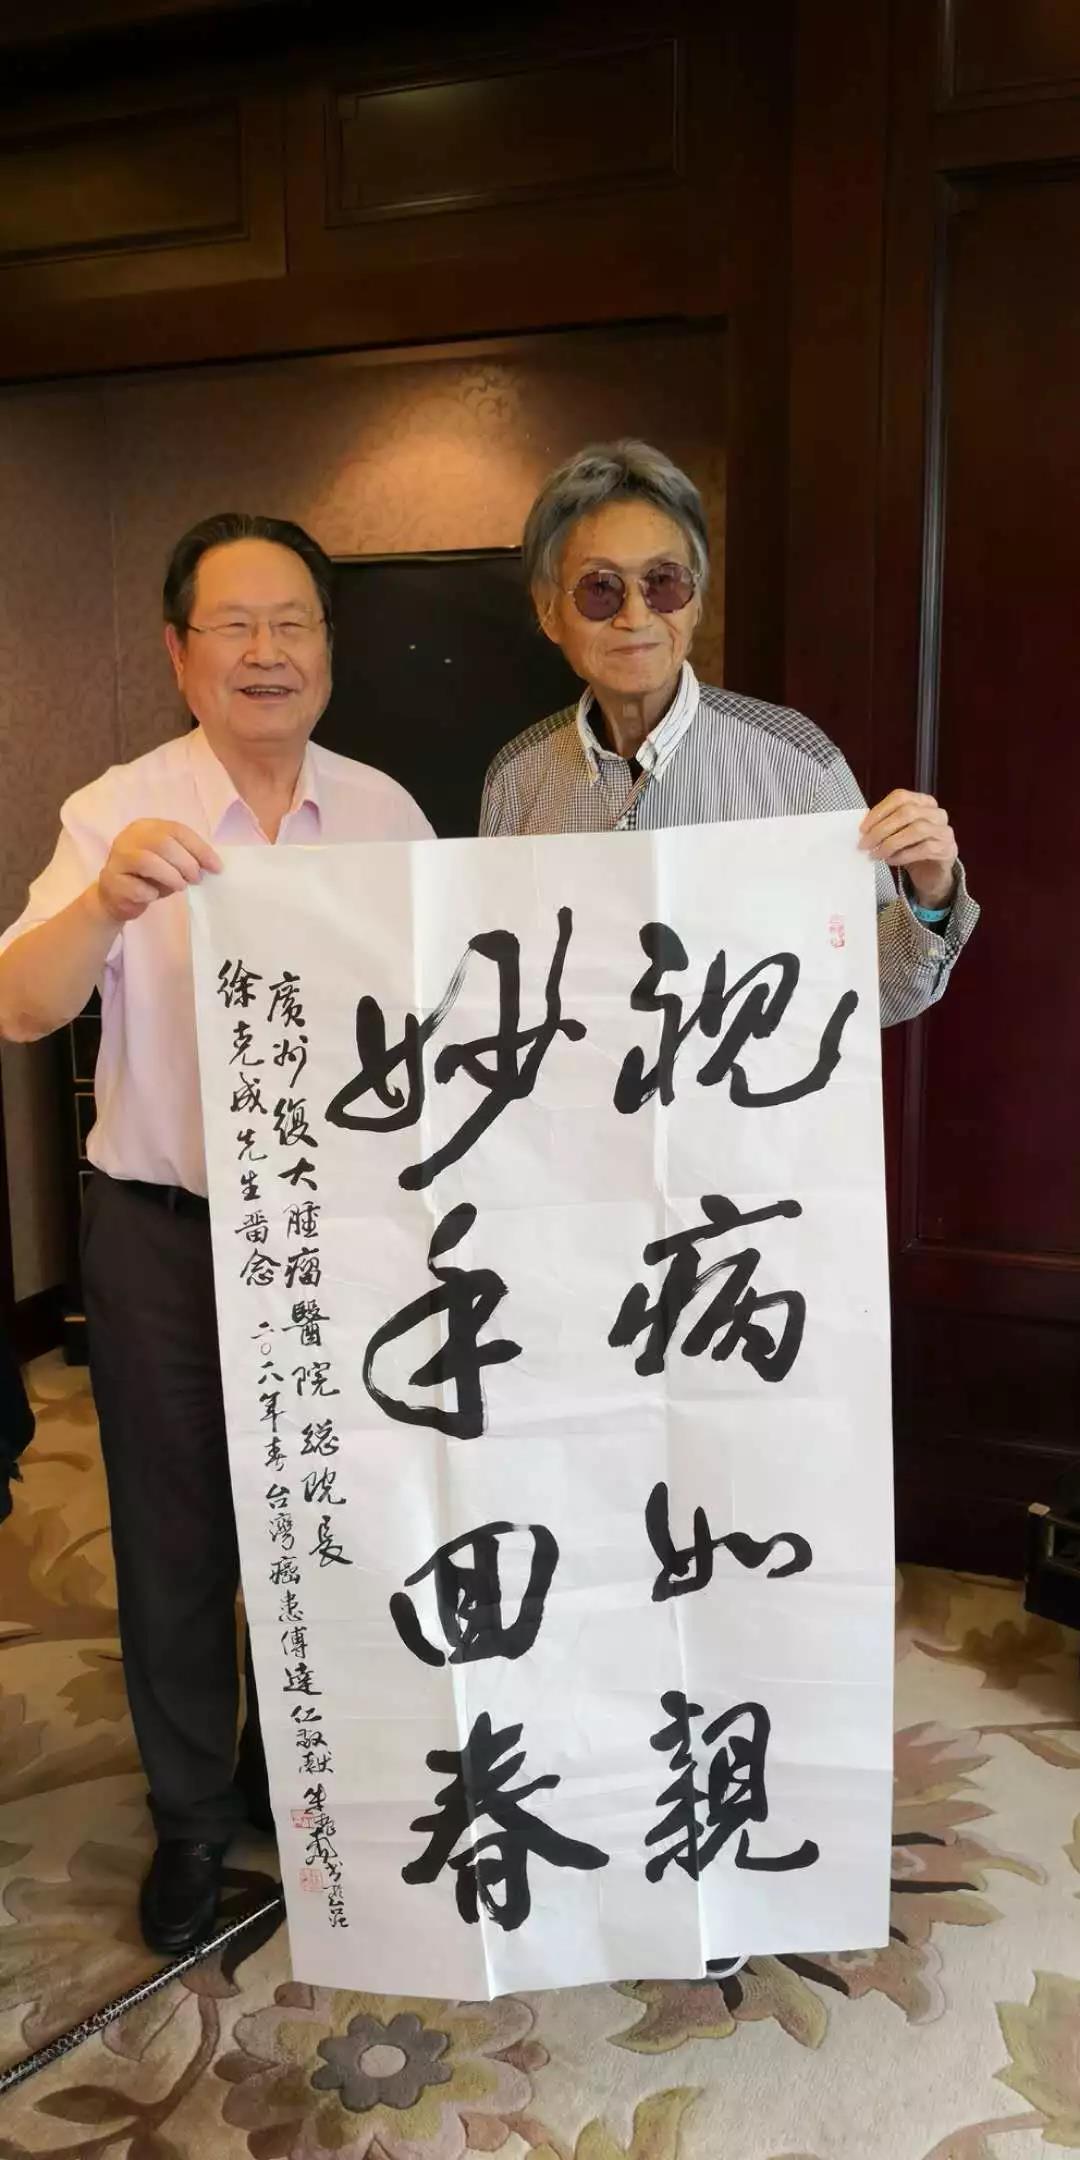 視病如親
妙手回春
廣州復大腫瘤醫院總院長
徐克成先生留念
二〇一八年春台灣癌患傅達仁敬献